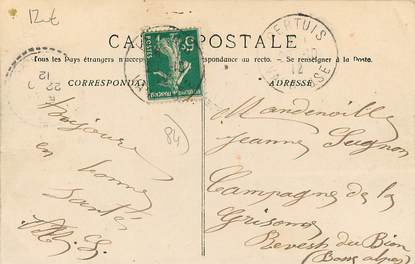 12€
CARTE POSTALE
Tous les Pays étrangers n'acceptent pas la Correspondance au recto. — Se renseigner à la Poste.
CORRESPONDANCE
ADRESSE
PERTUIS
12
5c
POSTES
22
12
84
Toujours
en bonne
santé
Mandenoille
Jeanne Seignon
Campagne de la
Grisonne
Revest du Bion
(Basses Alpes)